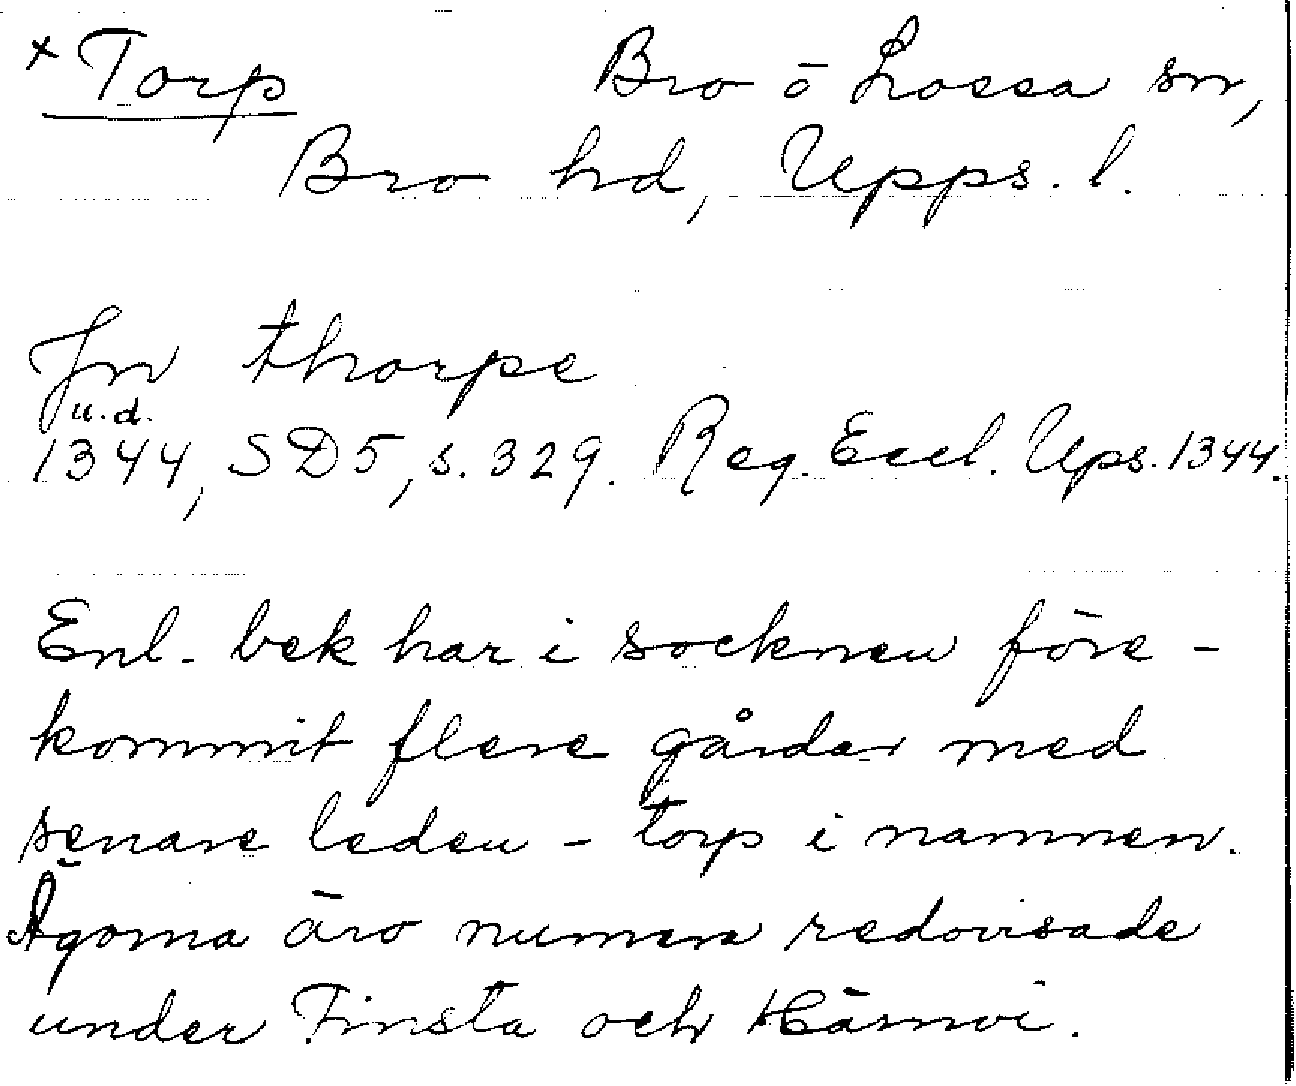 + Torp Bro o Lossa sn,
Bro hd, Upps. l.
Jn thorpe
u.d.
1344, SD5, s. 329. Reg. Eccl. Ups. 1344.
Enl. bek har i socknen före-
kommit flere gårdar med
senare leden - torp i namnen.
Ägorna äro numera redovisade
under Finsta och Härnvi.